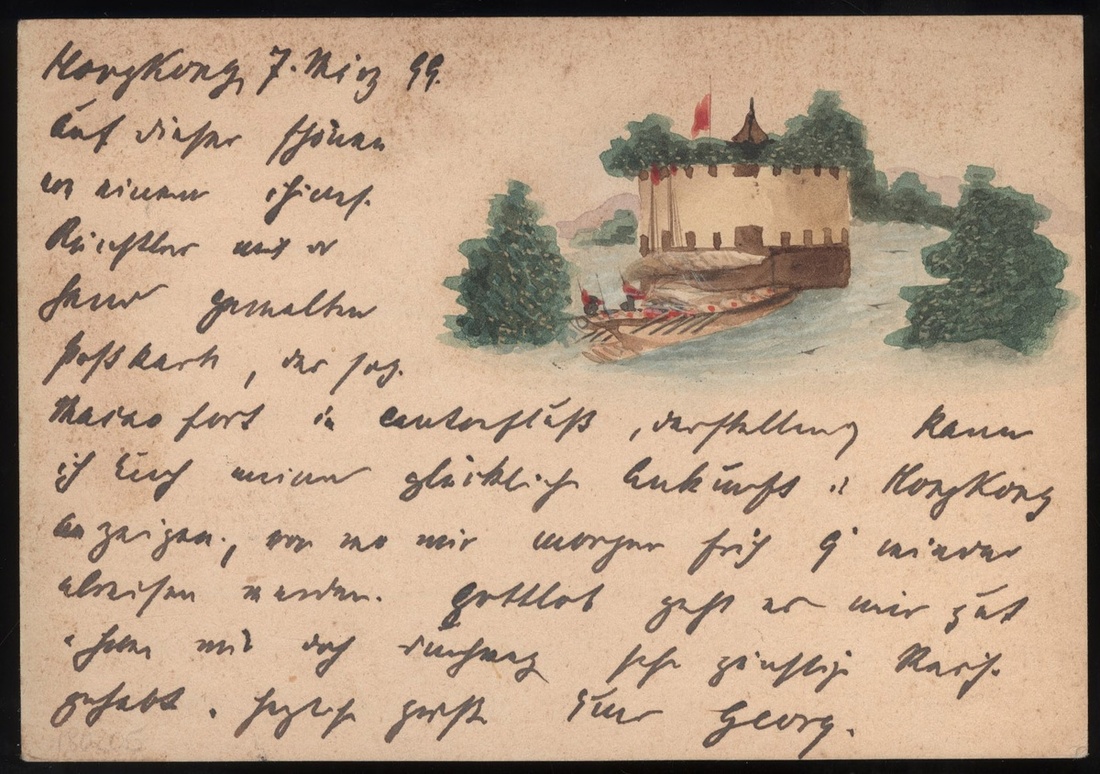 HongKong, 7. März 99.
Auf dieser schönen
von einem chines.
Künstler mit der
Hand gemalten
Postkarte, das sog.
Macao fort in Cantonfluß, darstellend, kann
ich Euch meine glückliche Ankunft in HongKong
anzeigen, von wo wir morgen früh 9 wieder
abreisen werden. Gottlob geht es mir gut
u. haben wir doch durchweg sehr günstige Reise
gehabt. Herzlich grüßt Euer Georg.